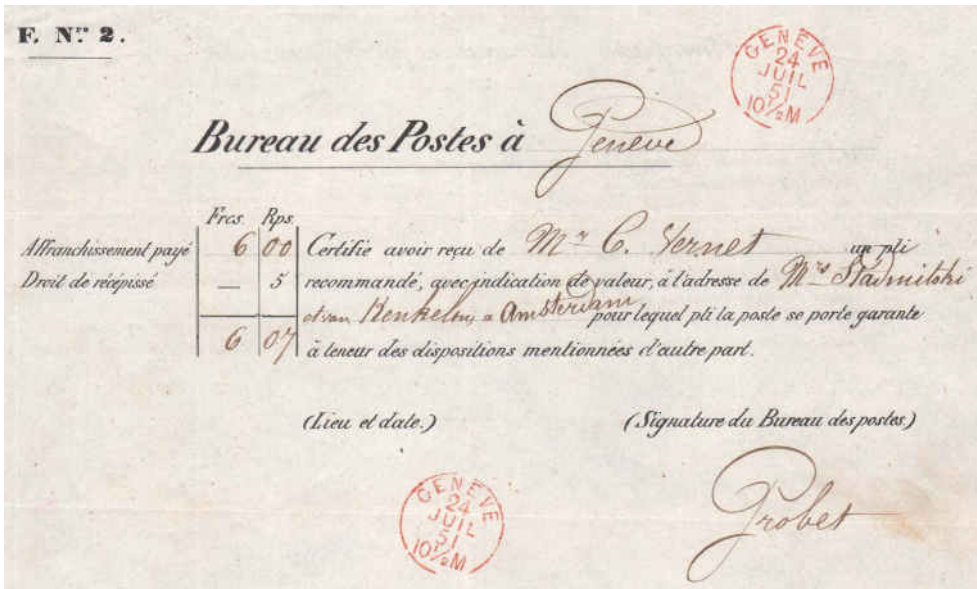 F. Nro 2.
GENÈVE
24
JUIL
51
10½M
Bureau des Postes à Genève
Frcs. Rps.
Affranchissement payé 6 00 Certifie avoir reçu de Mr C. Vernet un pli
Droit de récépissé — 5 recommandé, avec indication de valeur, à l'adresse de Mrs Stadnitski
et van Heukelom, a Amsterdam pour lequel pli la poste se porte garante
6 07 à teneur des dispositions mentionnées d'autre part.
(Lieu et date.) (Signature du Bureau des postes.)
GENÈVE
24
JUIL
51
10½M
Grobet